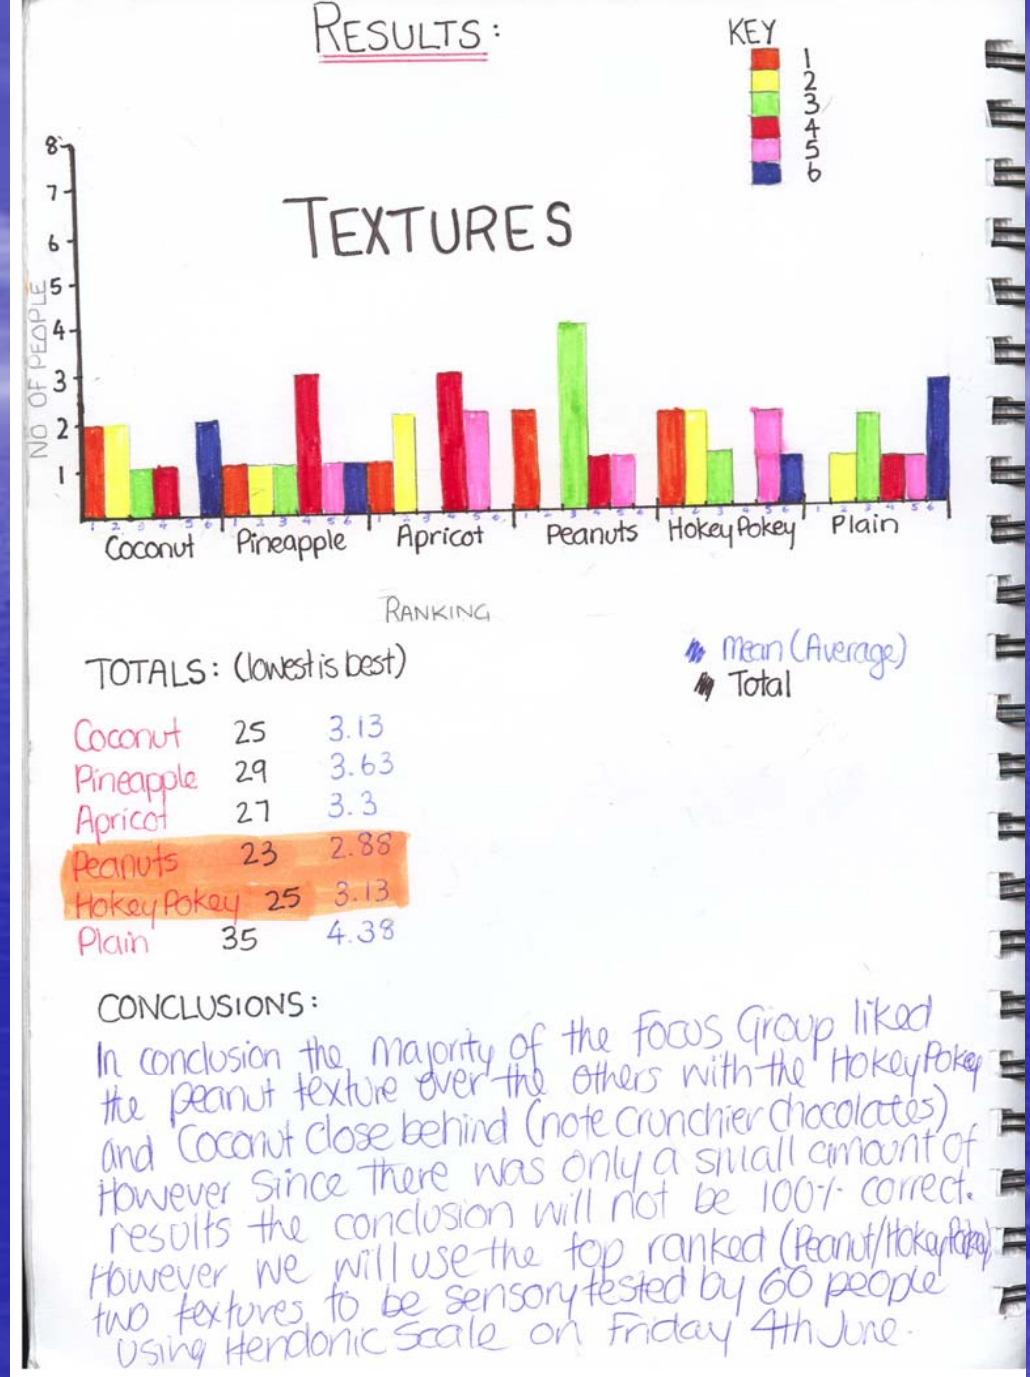 RESULTS:
KEY
1
2
3
4
5
6
TEXTURES
NO OF PEOPLE
8
7
6
5
4
3
2
1
1 2 3 4 5 6 1 2 3 4 5 6 1 2 3 4 5 6 1 2 3 4 5 6 1 2 3 4 5 6 1 2 3 4 5 6
Coconut Pineapple Apricot Peanuts Hokey Pokey Plain
RANKING
TOTALS: (lowest is best)
Mean (Average)
Total
Coconut 25 3.13
Pineapple 29 3.63
Apricot 27 3.3
Peanuts 23 2.88
Hokey Pokey 25 3.13
Plain 35 4.38
CONCLUSIONS:
In conclusion the majority of the Focus Group liked
the peanut texture over the others with the Hokey Pokey
and Coconut close behind (note crunchier chocolates)
However since there was only a small amount of
results the conclusion will not be 100% correct.
However we will use the top ranked (Peanut/Hokey Pokey)
two textures to be sensory tested by 60 people
using Hendonic Scale on Friday 4th June.